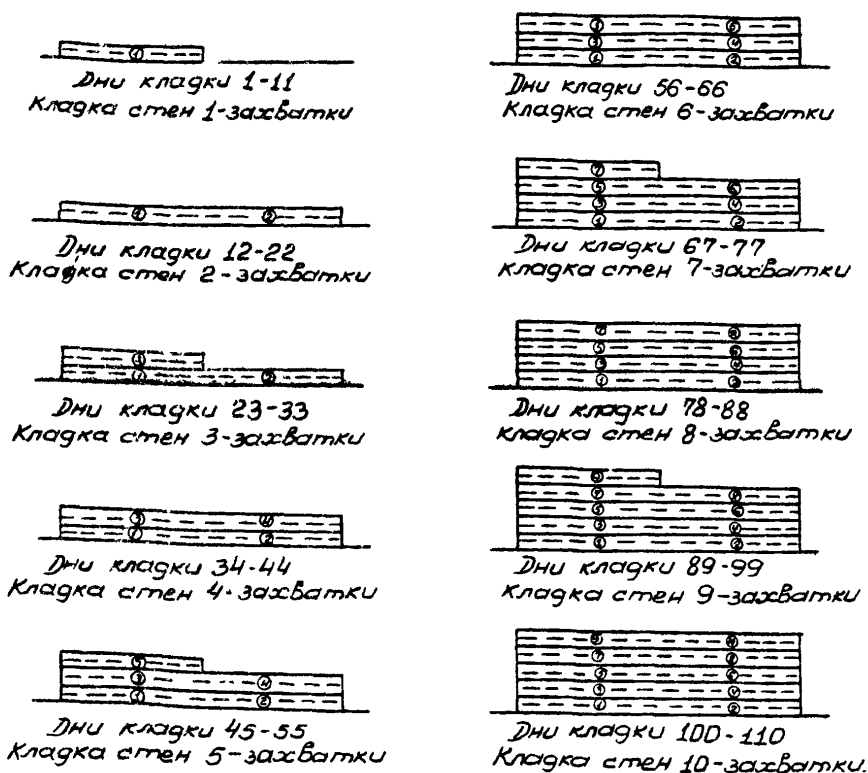 1
Дни кладки 1-11
Кладка стен 1-захватки
1 2
Дни кладки 12-22
Кладка стен 2-захватки
3
1 2
Дни кладки 23-33
Кладка стен 3-захватки
3 4
1 2
Дни кладки 34-44
Кладка стен 4-захватки
5
3 4
1 2
Дни кладки 45-55
Кладка стен 5-захватки
5 6
3 4
1 2
Дни кладки 56-66
Кладка стен 6-захватки
7
5 6
3 4
1 2
Дни кладки 67-77
Кладка стен 7-захватки
7 8
5 6
3 4
1 2
Дни кладки 78-88
Кладка стен 8-захватки
9
7 8
5 6
3 4
1 2
Дни кладки 89-99
Кладка стен 9-захватки
9 10
7 8
5 6
3 4
1 2
Дни кладки 100-110
Кладка стен 10-захватки.